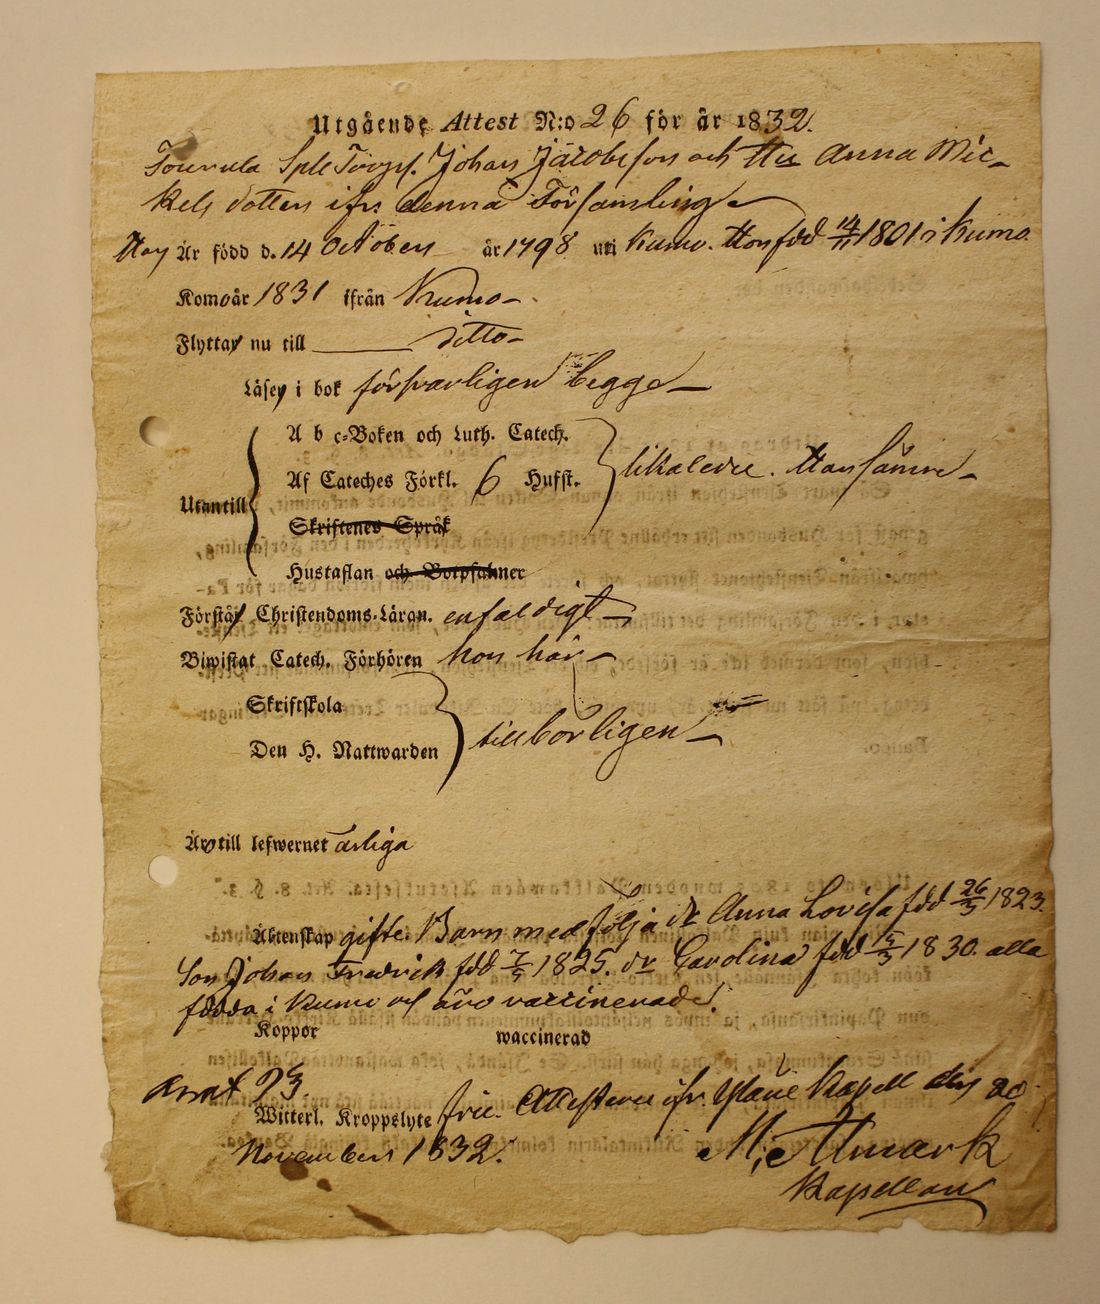 Utgående Attest N:o 26 för år 1832.
Johan Jacobsson och Hu Anna Mic-
kels dotter ifr. denna Församling
Han Är född d. 14 October år 1798 uti Kumo. Hon född 14/11 1801 i Kumo.
Kom år 1831 ifrån Kumo
Flyttar nu till ditto
Läser i bok försvarligen begge
A b c-Boken och Luth. Catech.
Af Cateches Förkl. 6 Hufst. likaledes. Han sämre
Utantill
Skriftenes Språk
Hustaflan och Botpsalmer
Förstår Christendoms-Läran. enfaldigt
Biwistat Catech. Förhören hon här
Skriftskola
Den H. Nattwarden tillbörligen
Äro till lefwernet ärliga
Äktenskap gifte. Barn medfölja dr Anna Lovisa född 26/5 1823.
Son Johan Fredrik född 7/5 1825. dr Carolina född 15/3 1830. alla
födda i Kumo och äro vaccinerade.
Koppor waccinerad
Witterl. Kroppslyte frie. Attesterer ifr. Kapell den 20
November 1832.
Kapellan